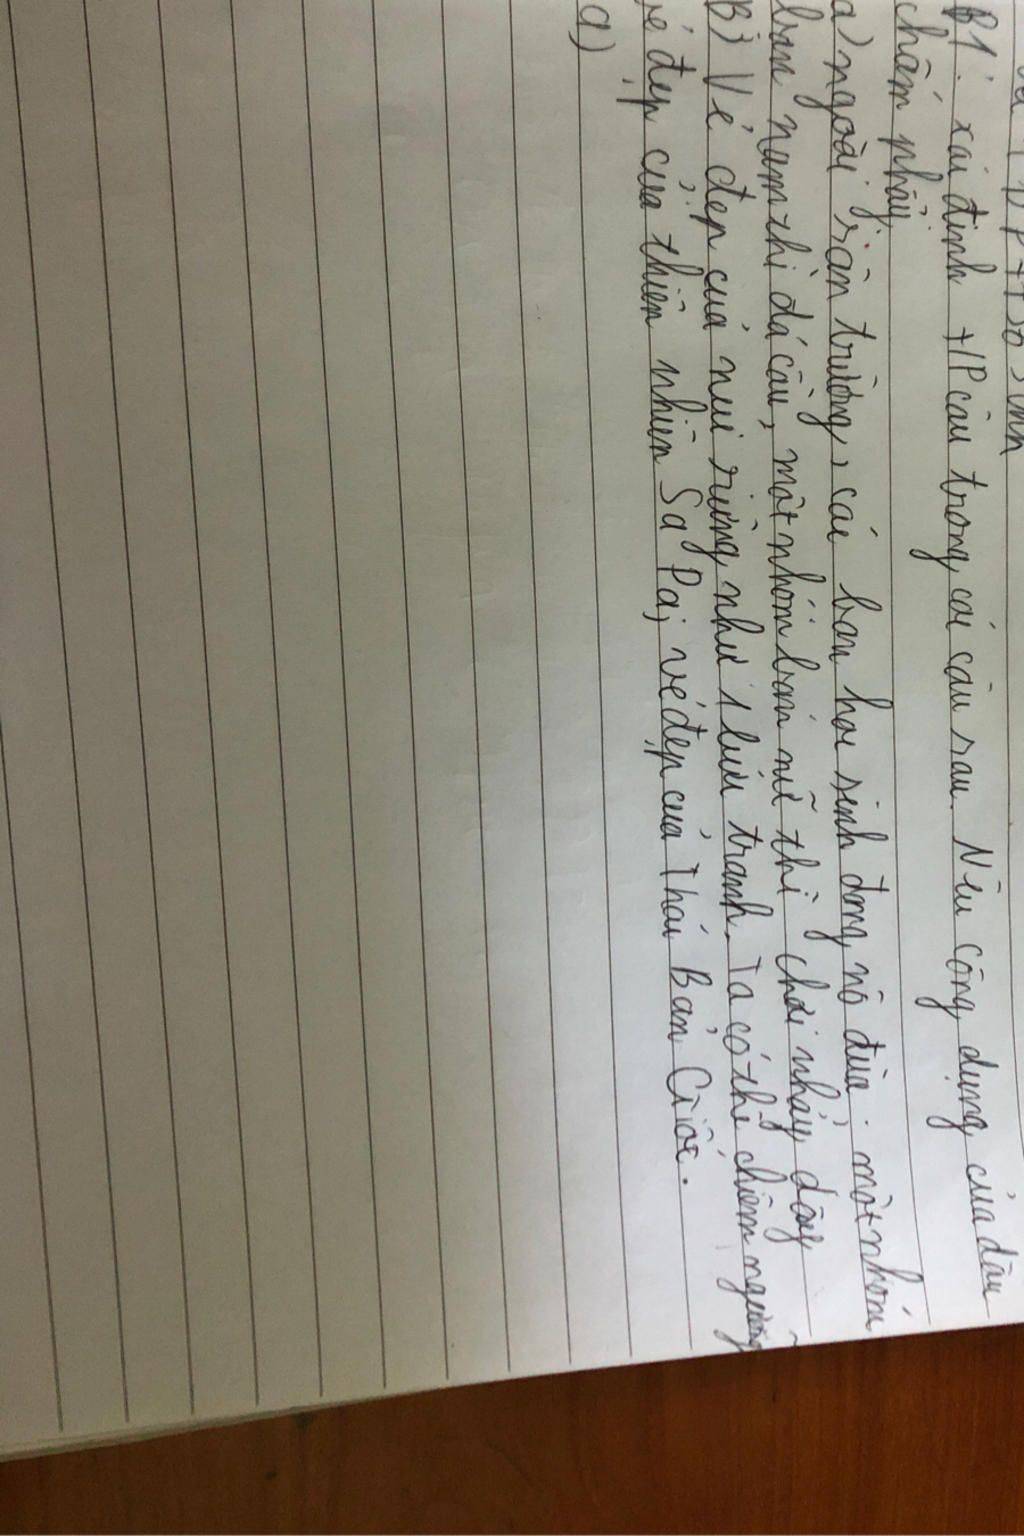 B1: xái định +/P câu trong cái câu sau. Nêu công dụng của dấu
chấm phẩy
a) ngoài sân trường, cái bạn học sinh đang nô đùa. một nhóm
bạn nam thì đá cầu, một nhóm bạn nữ thì chơi nhảy dây
B) Vẻ đẹp của núi rừng như 1 bức tranh. Ta có thể chiêm ngưỡng
vẻ đẹp của thiên nhiên Sa Pa; vẻ đẹp của Thác Bản Giốc.
a)